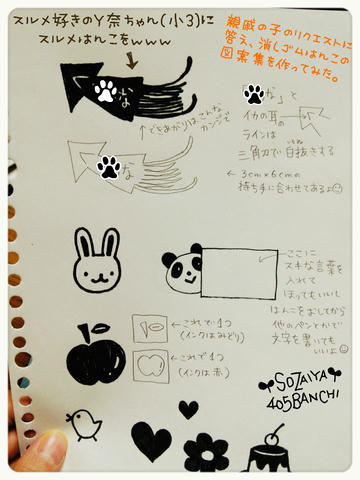 スルメ好きのY奈ちゃん(小3)に
スルメはんこをwww
親戚の子のリクエストに
答え、消しゴムはんこの
図案集を作ってみた。
な
↑できあがりはこんな
カンジで
な
な」と
イカの耳の
ラインは
三角刀で白抜きする
← 3cm×6cmの
持ち手に合わせてあるよ
ここに
スキな言葉を
入れて
ほってもいいし
はんこをおしてから
他のペンとかで
文字を書いても
いいよ
←これで1つ
(インクはみどり)
←これで1つ
(インクは赤)
SOZAIYA
405BANCHI